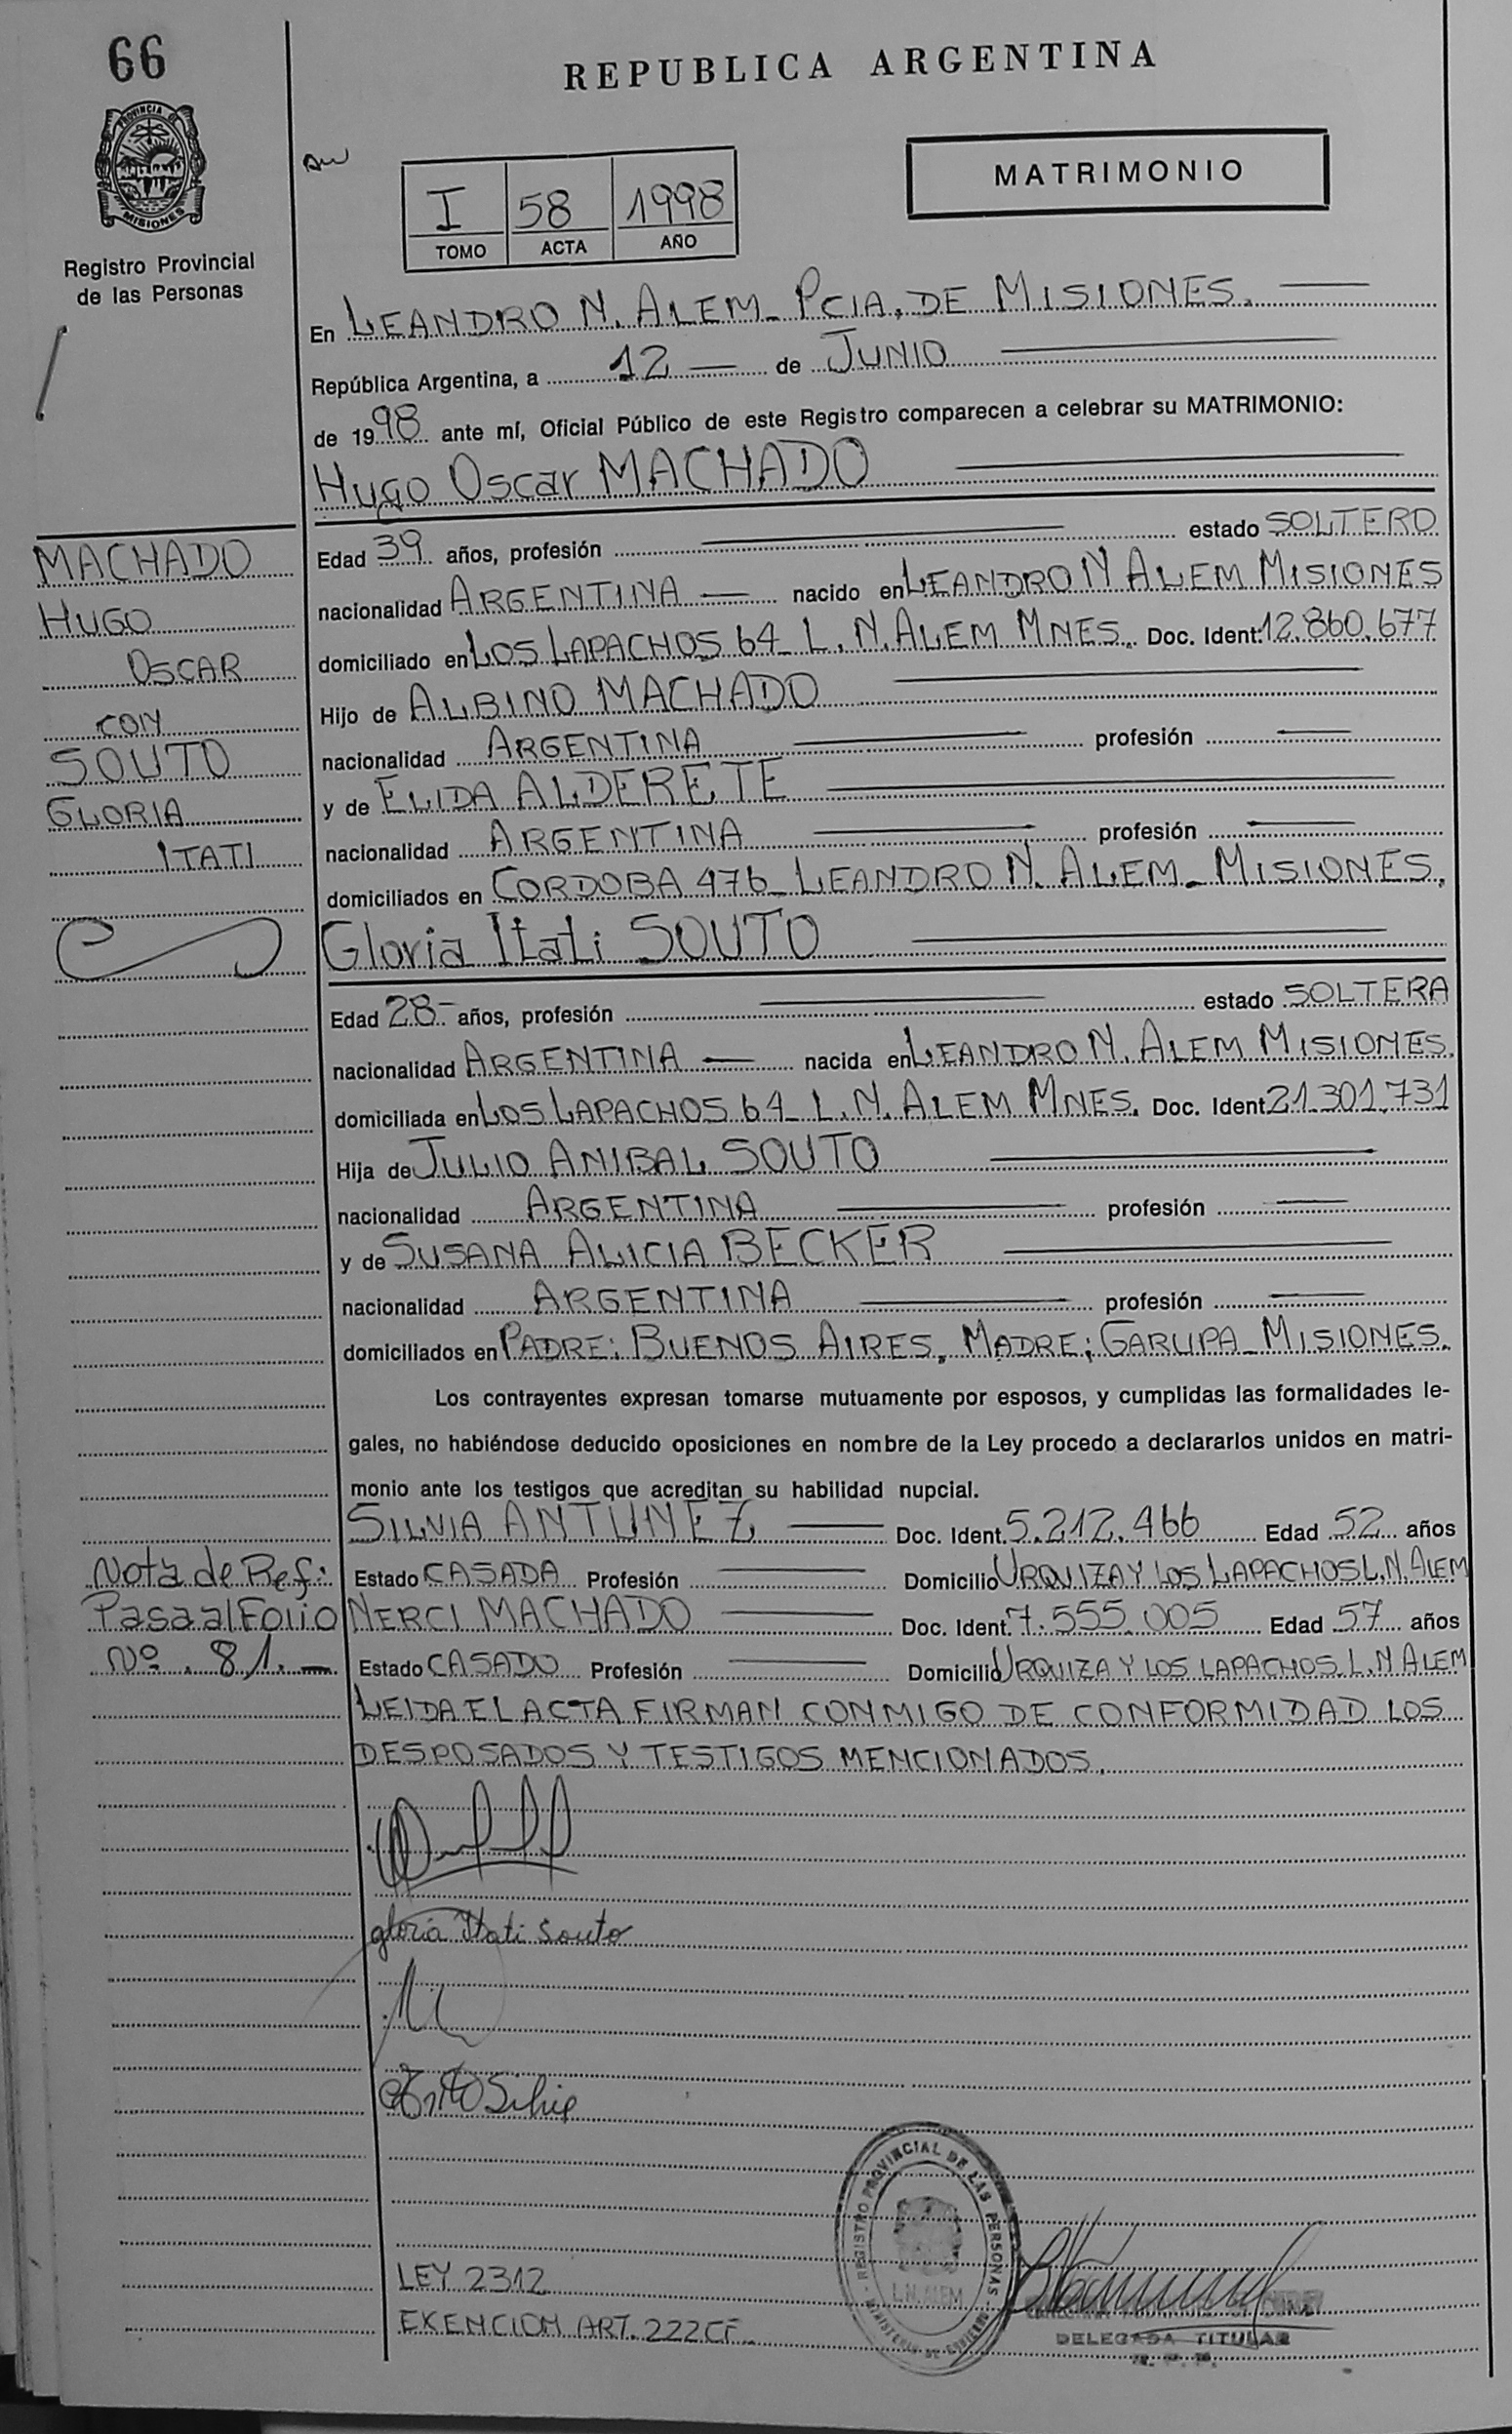 66
REPUBLICA ARGENTINA
PROVINCIA DE
MISIONES
Registro Provincial
de las Personas
I 58 1998
TOMO ACTA AÑO
MATRIMONIO
En LEANDRO N. ALEM_ PCIA. DE MISIONES.
República Argentina, a 12 — de JUNIO
de 1998 ante mí, Oficial Público de este Registro comparecen a celebrar su MATRIMONIO:
Hugo Oscar MACHADO
MACHADO
HUGO
OSCAR
CON
SOUTO
GLORIA
ITATI
Edad 39 años, profesión — estado SOLTERO
nacionalidad ARGENTINA — nacido en LEANDRO N ALEM MISIONES
domiciliado en LOS LAPACHOS 64_ L. N. ALEM MNES. Doc. Ident: 12.860.677
Hijo de ALBINO MACHADO
nacionalidad ARGENTINA — profesión —
y de ELIDA ALDERETE
nacionalidad ARGENTINA — profesión —
domiciliados en CORDOBA 476_ LEANDRO N. ALEM_ MISIONES.
Gloria Itati SOUTO
Edad 28- años, profesión — estado SOLTERA
nacionalidad ARGENTINA — nacida en LEANDRO N. ALEM MISIONES.
domiciliada en LOS LAPACHOS 64_ L. N. ALEM MNES. Doc. Ident. 21.301.731
Hija de JULIO ANIBAL SOUTO
nacionalidad ARGENTINA — profesión —
y de SUSANA ALICIA BECKER
nacionalidad ARGENTINA — profesión —
domiciliados en PADRE: BUENOS AIRES. MADRE: GARUPA_ MISIONES.
Los contrayentes expresan tomarse mutuamente por esposos, y cumplidas las formalidades le-
gales, no habiéndose deducido oposiciones en nombre de la Ley procedo a declararlos unidos en matri-
monio ante los testigos que acreditan su habilidad nupcial.
SILVIA ANTUNEZ — Doc. Ident. 5.212.466 Edad 52 años
Estado CASADA Profesión — Domicilio URQUIZA Y LOS LAPACHOS L.N. ALEM
NERCI MACHADO — Doc. Ident. 7.555.005 Edad 57 años
Estado CASADO Profesión — Domicilio URQUIZA Y LOS LAPACHOS L.N ALEM
Nota de Ref:
Pasa al Folio
Nº. 81.—
LEIDA EL ACTA FIRMAN CONMIGO DE CONFORMIDAD LOS
DESPOSADOS Y TESTIGOS MENCIONADOS.
gloria Itati Souto
LEY 2312
EXENCION ART. 222CF.
REGISTRO PROVINCIAL DE LAS PERSONAS
L.N. ALEM
MINISTERIO DE GOBIERNO
DELEGADA TITULAR
R. P. P.